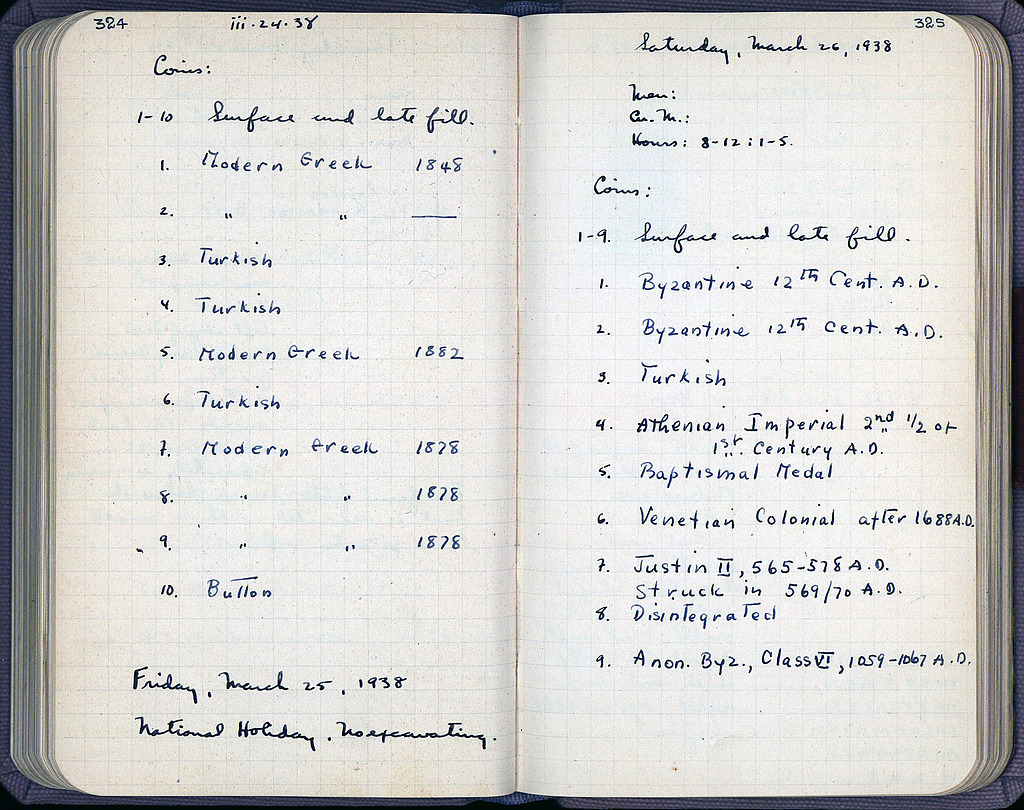 324
iii.24.38
Coins:
1-10 Surface and late fill.
1. Modern Greek 1848
2. " " ——
3. Turkish
4. Turkish
5. Modern Greek 1882
6. Turkish
7. Modern Greek 1878
8. " " 1878
9. " " 1878
10. Button
Friday, March 25, 1938
National Holiday. No excavating.
325
Saturday, March 26, 1938
Men:
Cu. M.:
Hours: 8-12 : 1-5.
Coins:
1-9. Surface and late fill.
1. Byzantine 12th Cent. A.D.
2. Byzantine 12th Cent. A.D.
3. Turkish
4. Athenian Imperial 2nd 1/2 of
1st. Century A.D.
5. Baptismal Medal
6. Venetian Colonial after 1688 A.D.
7. Justin II, 565-578 A.D.
Struck in 569/70 A.D.
8. Disintegrated
9. Anon. Byz., Class VI, 1059-1067 A.D.